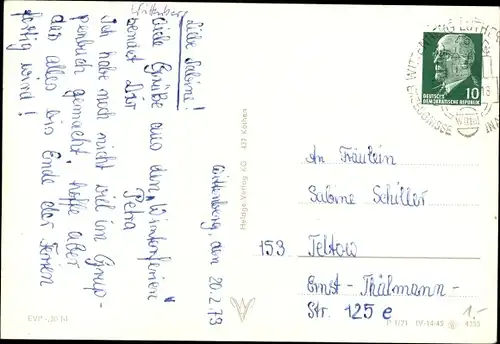 Wittenberg
Liebe Sabine!
Viele Grüße aus den Winterferien
sendet Dir
Petra
Ich habe noch nicht viel im Grup-
penbuch gemacht, hoffe aber
das alles bis Ende der Ferien
fertig wird!
Wittenberg, den 20.2.73
Heldge-Verlag KG 437 Köthen
DEUTSCHE
DEMOKRATISCHE REPUBLIK
10
An Fräulein
Sabine Schiller
153 Teltow
Ernst-Thälmann-
Str. 125 e
1.-